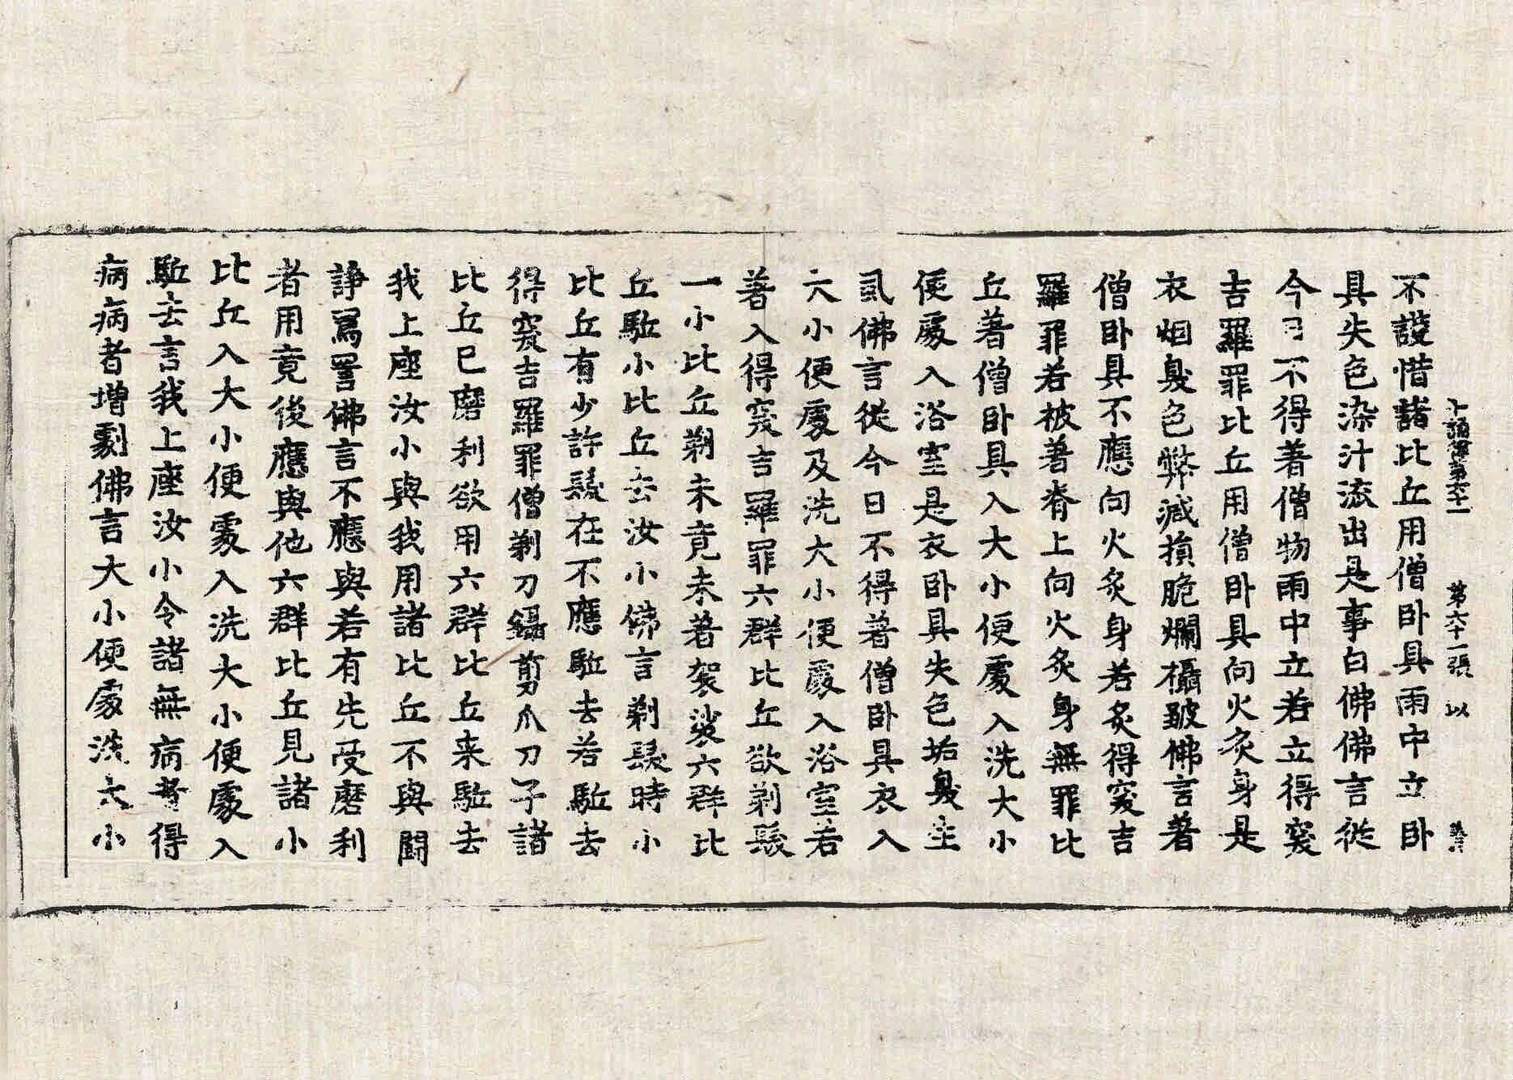 十誦律第六十一　第六十一張　以
不護惜諸比丘用僧卧具雨中立卧
具失色染汁流出是事白佛佛言從
今日不得著僧物雨中立若立得突
吉羅罪比丘用僧卧具向火炙身是
衣烟臭色弊減損脆爛攝皺佛言著
僧卧具不應向火炙身若炙得突吉
羅罪若被著脊上向火炙身無罪比
丘著僧卧具入大小便處入洗大小
便處入浴室是衣卧具失色垢臭生
虱佛言從今日不得著僧卧具衣入
大小便處及洗大小便處入浴室若
著入得突吉羅罪六群比丘欲剃髮
一小比丘剃未竟未著袈裟六群比
丘駈小比丘去汝小佛言剃髮時小
比丘有少許髮在不應駈去若駈去
得突吉羅罪僧剃刀鑷剪爪刀子諸
比丘已磨利欲用六群比丘来駈去
我上座汝小與我用諸比丘不與鬪
諍罵詈佛言不應與若有先受磨利
者用竟後應與他六群比丘見諸小
比丘入大小便處入洗大小便處入
駈去言我上座汝小令諸無病者得
病病者增劇佛言大小便處洗大小